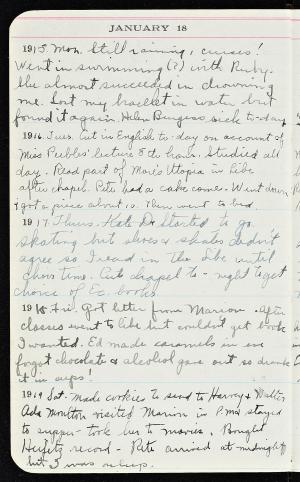 JANUARY 18
1915. Mon. Still raining, curses!
Went in swimming (?) with Ruby.
She almost succeeded in drowning
me. Lost my bracelet in water but
found it again. Helen Burgess sick to-day
1916. Tues. Cut in English to-day on account of
Miss Peebles' lecture 8th hour. Studied all
day. Read part of More's Utopia in Libe
after chapel. Pete had a cake come. Went down
& got a piece about 10. Then went to bed.
1917. Thurs. Kate D. Started to go
skating but shoes & skates didn't
agree so I read in the Libe until
class time. Cut chapel to-night to get
choice of Ec. books.
1918 Fri. Got letter from Marion. After
classes went to libe but couldn't get book
I wanted. Ed made caramels in eve
forgot chocolate & alcohol gave out so drank
it in cups!
1919 Sat. Made cookies to send to Harvey & Walter
Ada Moulton visited Marion in P.M. & stayed
to supper - took her to movies. Bought
Heifetz record - Pete arrived at midnight
but I was asleep.